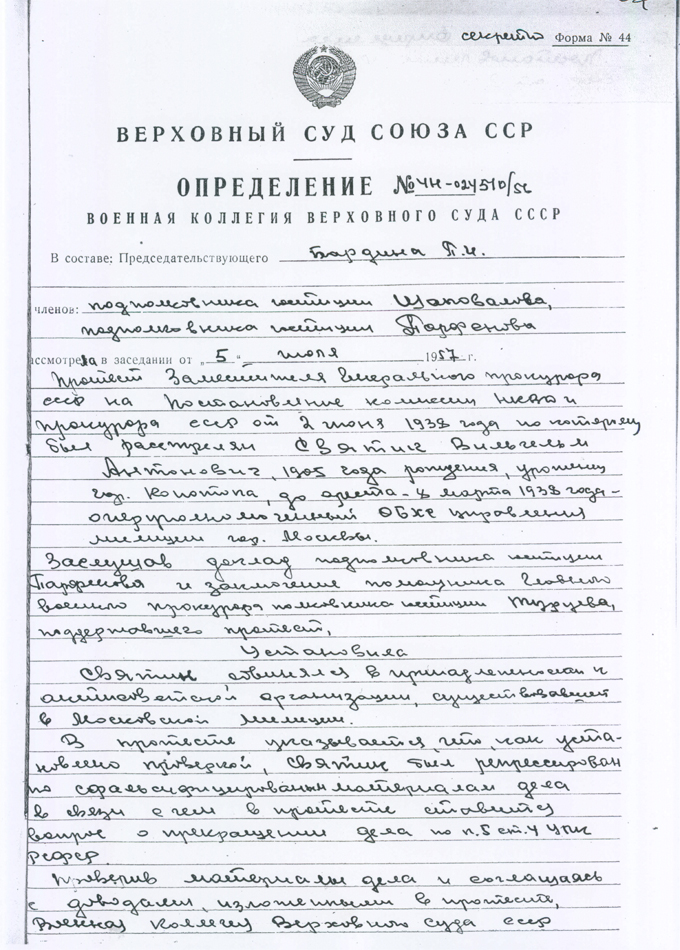 секретно Форма № 44
ВЕРХОВНЫЙ СУД СОЮЗА ССР
ОПРЕДЕЛЕНИЕ №4Н-024510/56
ВОЕННАЯ КОЛЛЕГИЯ ВЕРХОВНОГО СУДА СССР
В составе: Председательствующего Бардина П.И.
членов: подполковника юстиции Шаповалова,
подполковника юстиции Парфенова
рассмотрела в заседании от „5“ июля 1957 г.
Протест Заместителя Генерального прокурора
СССР на Постановление комиссии НКВД и
прокурора СССР от 2 июня 1938 года по которому
был расстрелян Святик Вильгельм
Антонович, 1905 года рождения, уроженец
гор. Конотопа, до ареста - марта 1938 года -
оперуполномоченный ОБХС управления
милиции гор. Москвы.
Заслушав доклад подполковника юстиции
Парфенова и заключение помощника Главного
военного прокурора полковника юстиции
поддержавшего протест,
Установила
Святик обвинялся в принадлежности к
антисоветской организации, существовавшей
в Московской милиции.
В протесте указывается, что, как уста-
новлено проверкой, Святик был репрессирован
по сфальсифицированным материалам дела
в связи с чем в протесте ставится
вопрос о прекращении дела по п.5 ст.4 УПК
РСФСР.
Проверив материалы дела и соглашаясь
с доводами, изложенными в протесте,
Военная Коллегия Верховного суда СССР